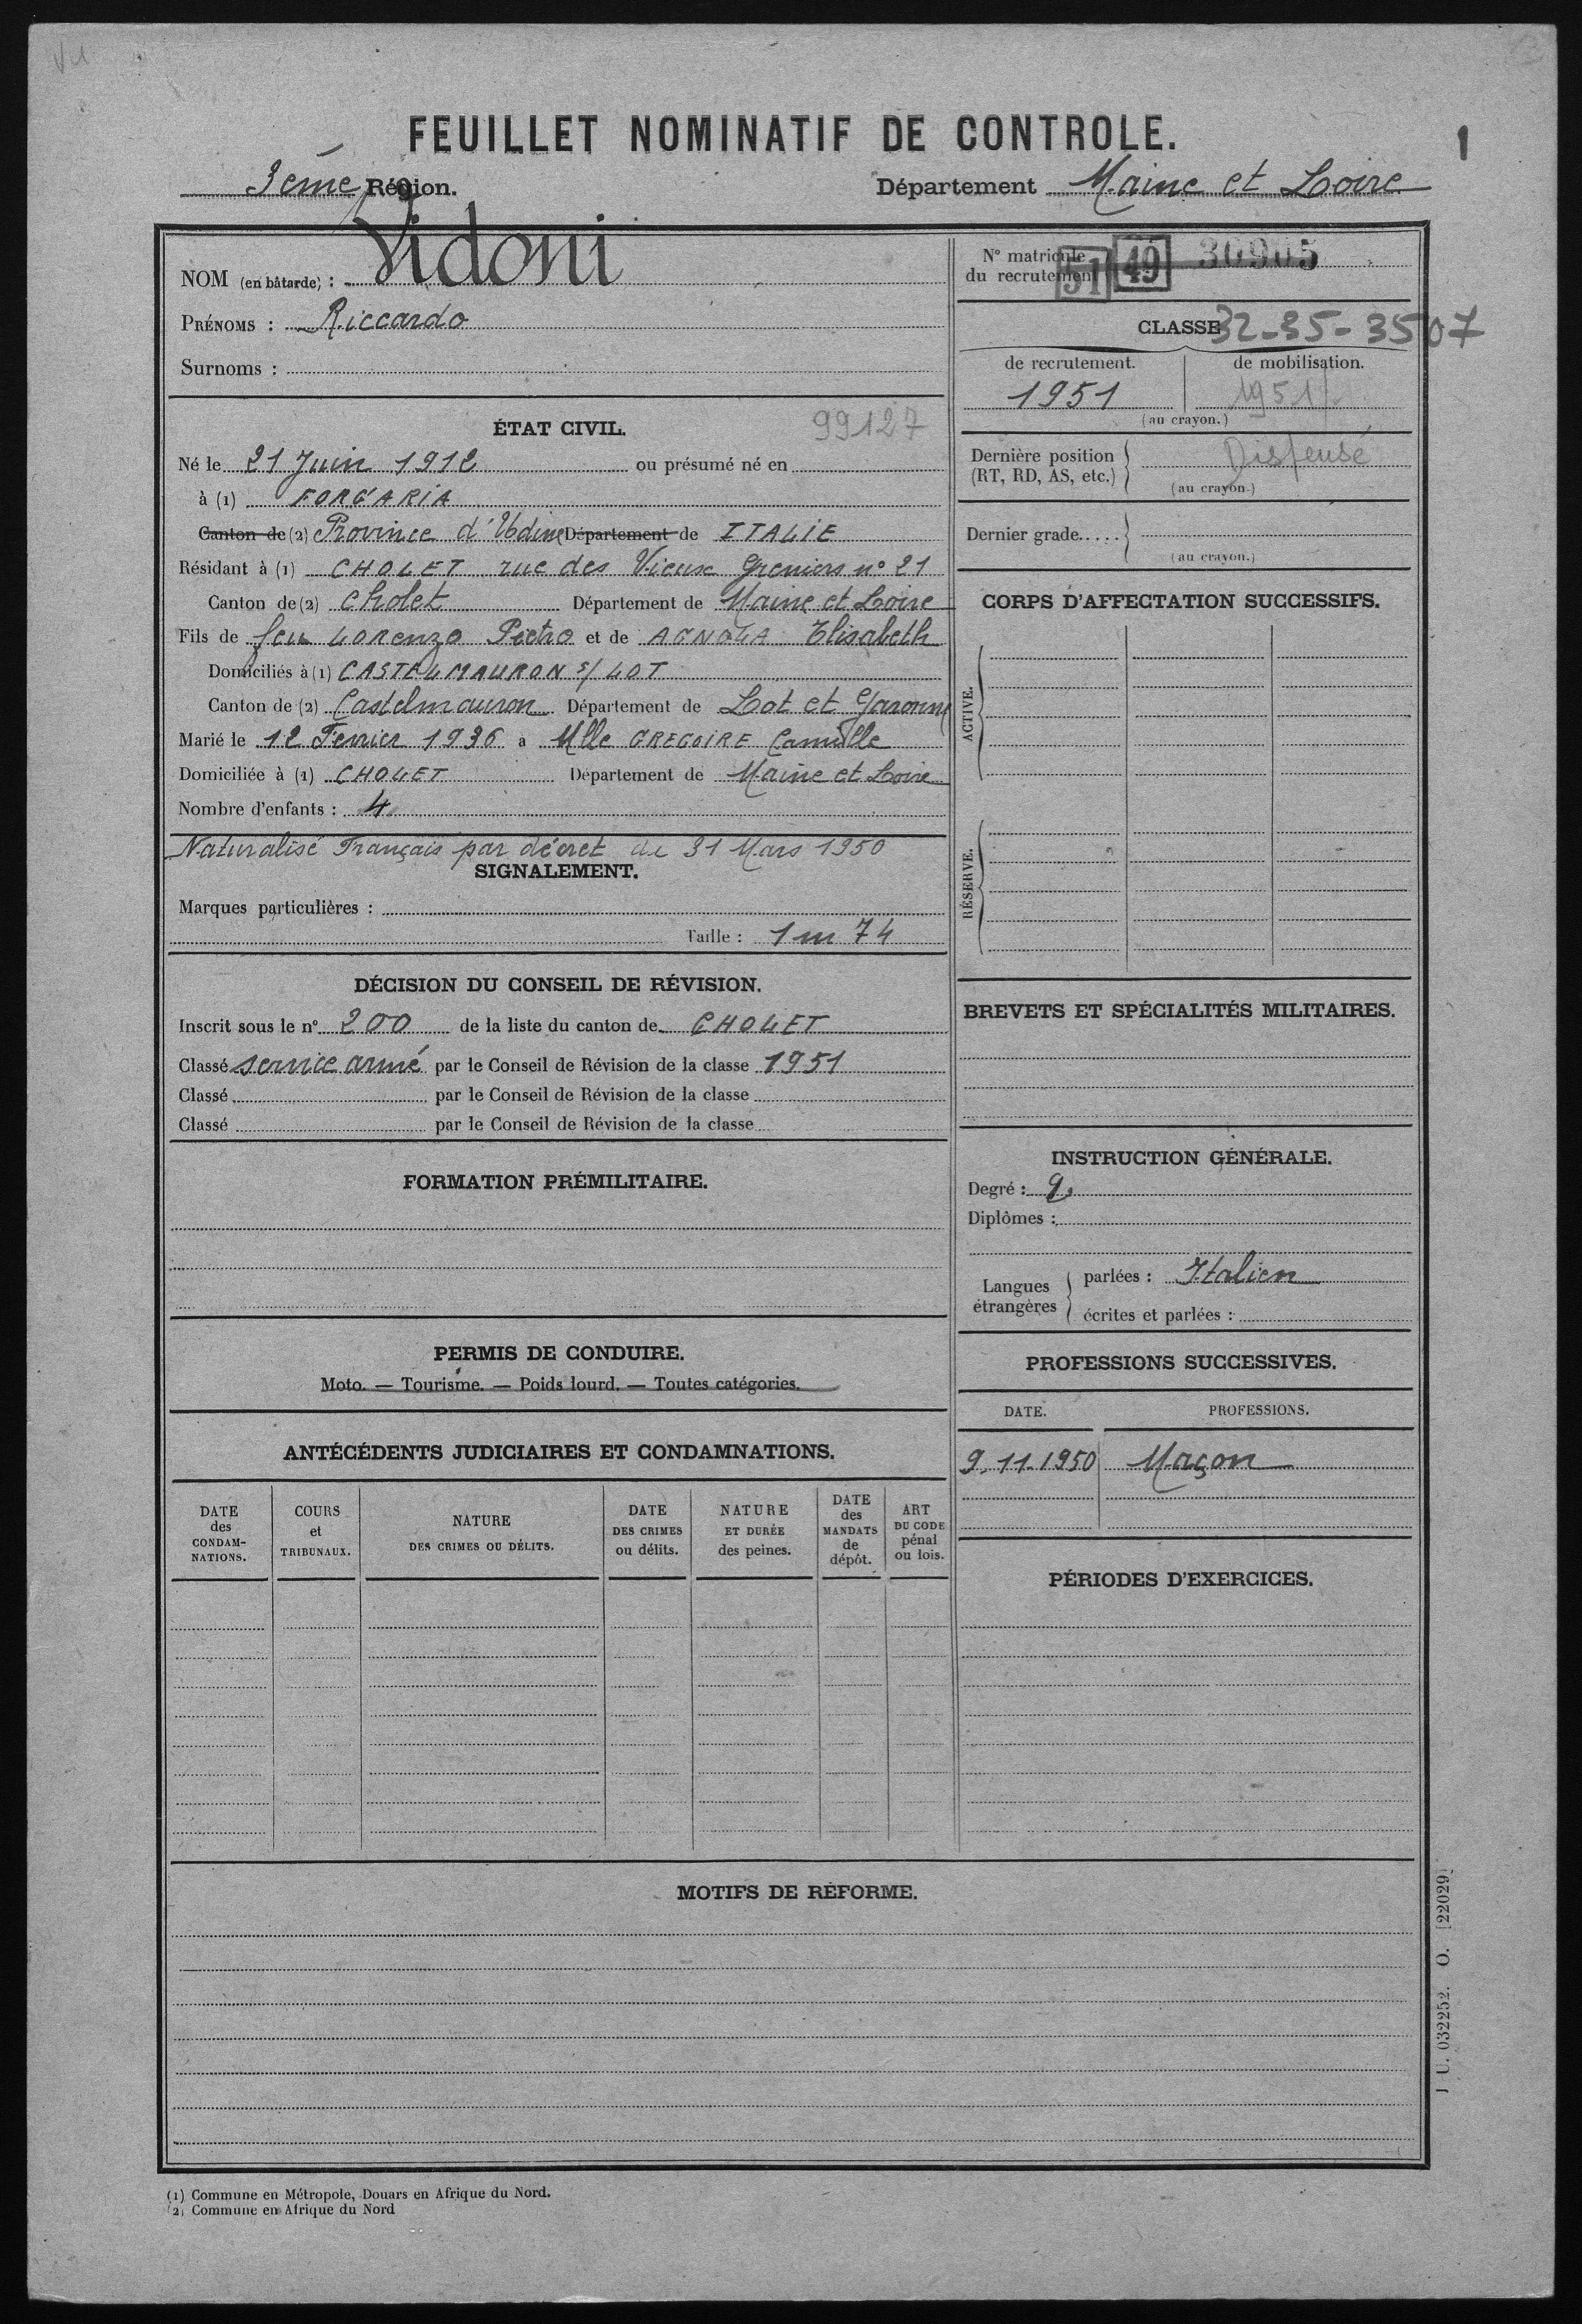 FEUILLET NOMINATIF DE CONTROLE.
1
3ème Région.
Département Maine et Loire
NOM (en bâtarde) : Vidoni
PRÉNOMS : Riccardo
Surnoms :
ÉTAT CIVIL.
99127
Né le 21 Juin 1912 ou présumé né en
à (1) FORGARIA
Canton de (2) Province d'Udine Département de ITALIE
Résidant à (1) CHOLET rue des Vieux Greniers n° 21
Canton de (2) Cholet Département de Maine et Loire
Fils de feu LORENZO Pietro et de AGNOLA Elisabeth
Domiciliés à (1) CASTELMAURON s/ LOT
Canton de (2) Castelmauron Département de Lot et Garonne
Marié le 12 Fevrier 1936 a Mlle GREGOIRE Camille
Domiciliée à (1) CHOLET Département de Maine et Loire
Nombre d'enfants : 4
Naturalisé Français par décret du 31 Mars 1950
SIGNALEMENT.
Marques particulières :
Taille : 1m 74
DÉCISION DU CONSEIL DE RÉVISION.
Inscrit sous le n° 200 de la liste du canton de CHOLET
Classé service armé par le Conseil de Révision de la classe 1951
Classé par le Conseil de Révision de la classe
Classé par le Conseil de Révision de la classe
FORMATION PRÉMILITAIRE.
PERMIS DE CONDUIRE.
Moto. — Tourisme. — Poids lourd. — Toutes catégories.
ANTÉCÉDENTS JUDICIAIRES ET CONDAMNATIONS.
DATE des CONDAMNATIONS.
COURS et TRIBUNAUX.
NATURE DES CRIMES OU DÉLITS.
DATE DES CRIMES ou délits.
NATURE ET DURÉE des peines.
DATE des MANDATS de dépôt.
ART DU CODE pénal ou lois.
N° matricule
du recrutement 51 49 30905
CLASSE 32-35-3507
de recrutement. de mobilisation.
1951 1951
(au crayon.)
Dernière position
(RT, RD, AS, etc.) Dispensé
(au crayon.)
Dernier grade.....
(au crayon.)
CORPS D'AFFECTATION SUCCESSIFS.
ACTIVE.
RÉSERVE.
BREVETS ET SPÉCIALITÉS MILITAIRES.
INSTRUCTION GÉNÉRALE.
Degré :
Diplômes :
Langues étrangères
parlées : Italien
écrites et parlées :
PROFESSIONS SUCCESSIVES.
DATE. PROFESSIONS.
9.11.1950 Maçon
PÉRIODES D'EXERCICES.
MOTIFS DE RÉFORME.
J U. 032252. O. [22029]
(1) Commune en Métropole, Douars en Afrique du Nord.
(2) Commune en Afrique du Nord